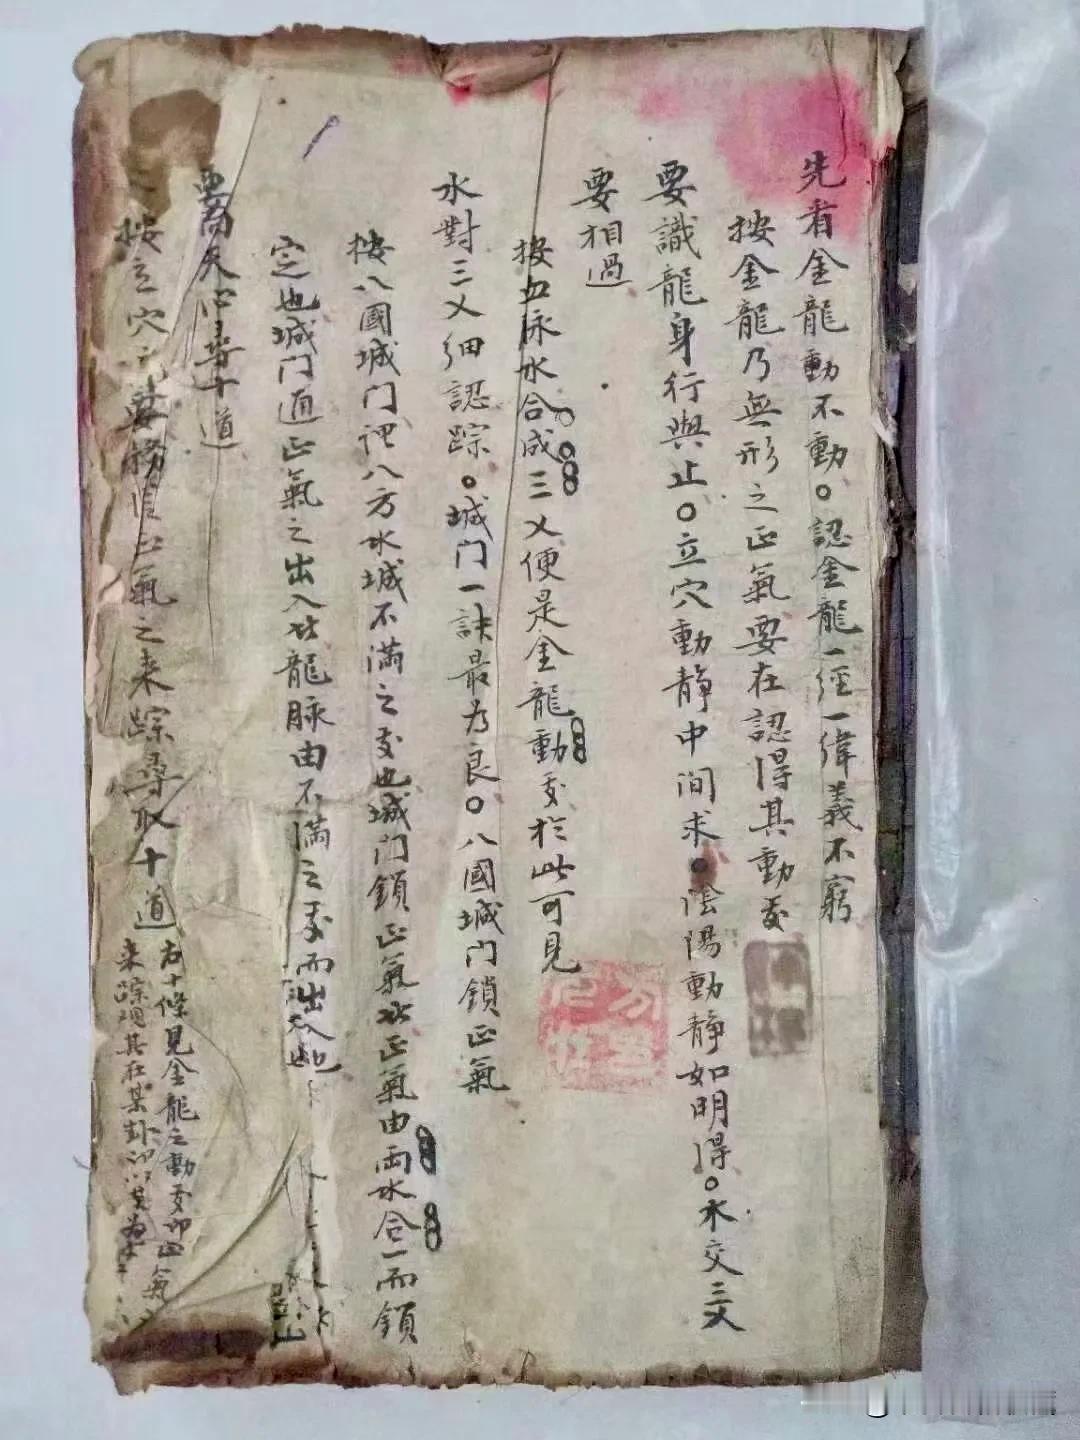 先看金龍動不動。認金龍一經一緯義不窮
按金龍乃無形之正氣要在認得其動處
要識龍身行與止。立穴動靜中间求。陰陽動靜如明得。水交三乂
要相過
按血脉水合成三乂便是金龍動處於此可見
水對三乂细認踪。城门一訣最为良。八國城门鎖正氣
按八國城门謂八方水城不滿之處也城门鎖正氣此正氣由两水合一而鎖
定也城门通正氣之出入此龍脉由不滿之處而出入也
要向天心尋十道
按立穴之要務 氣之来踪尋取十道
右十條見金龍之動處卯 氣
来踪 其在某卦